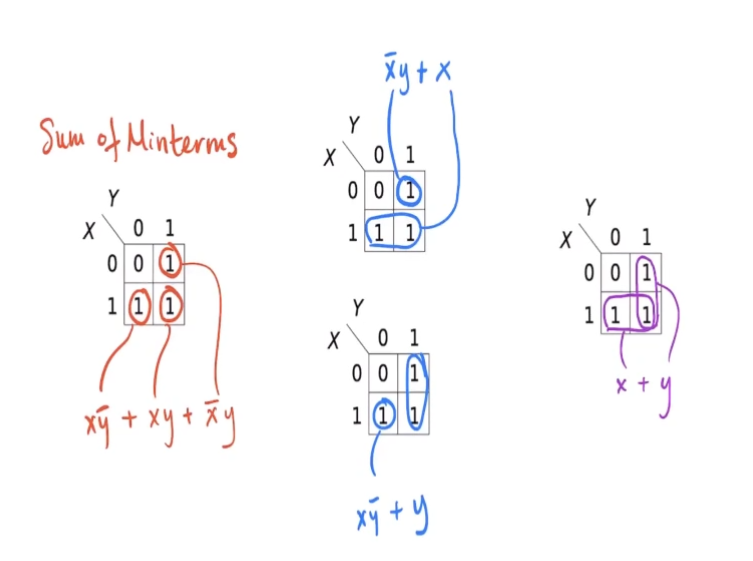 Sum of Minterms
Y
X 0 1
0 0 1
1 1 1
xȳ + xy + x̄y
x̄y + x
Y
X 0 1
0 0 1
1 1 1
Y
X 0 1
0 0 1
1 1 1
xȳ + y
Y
X 0 1
0 0 1
1 1 1
x + y